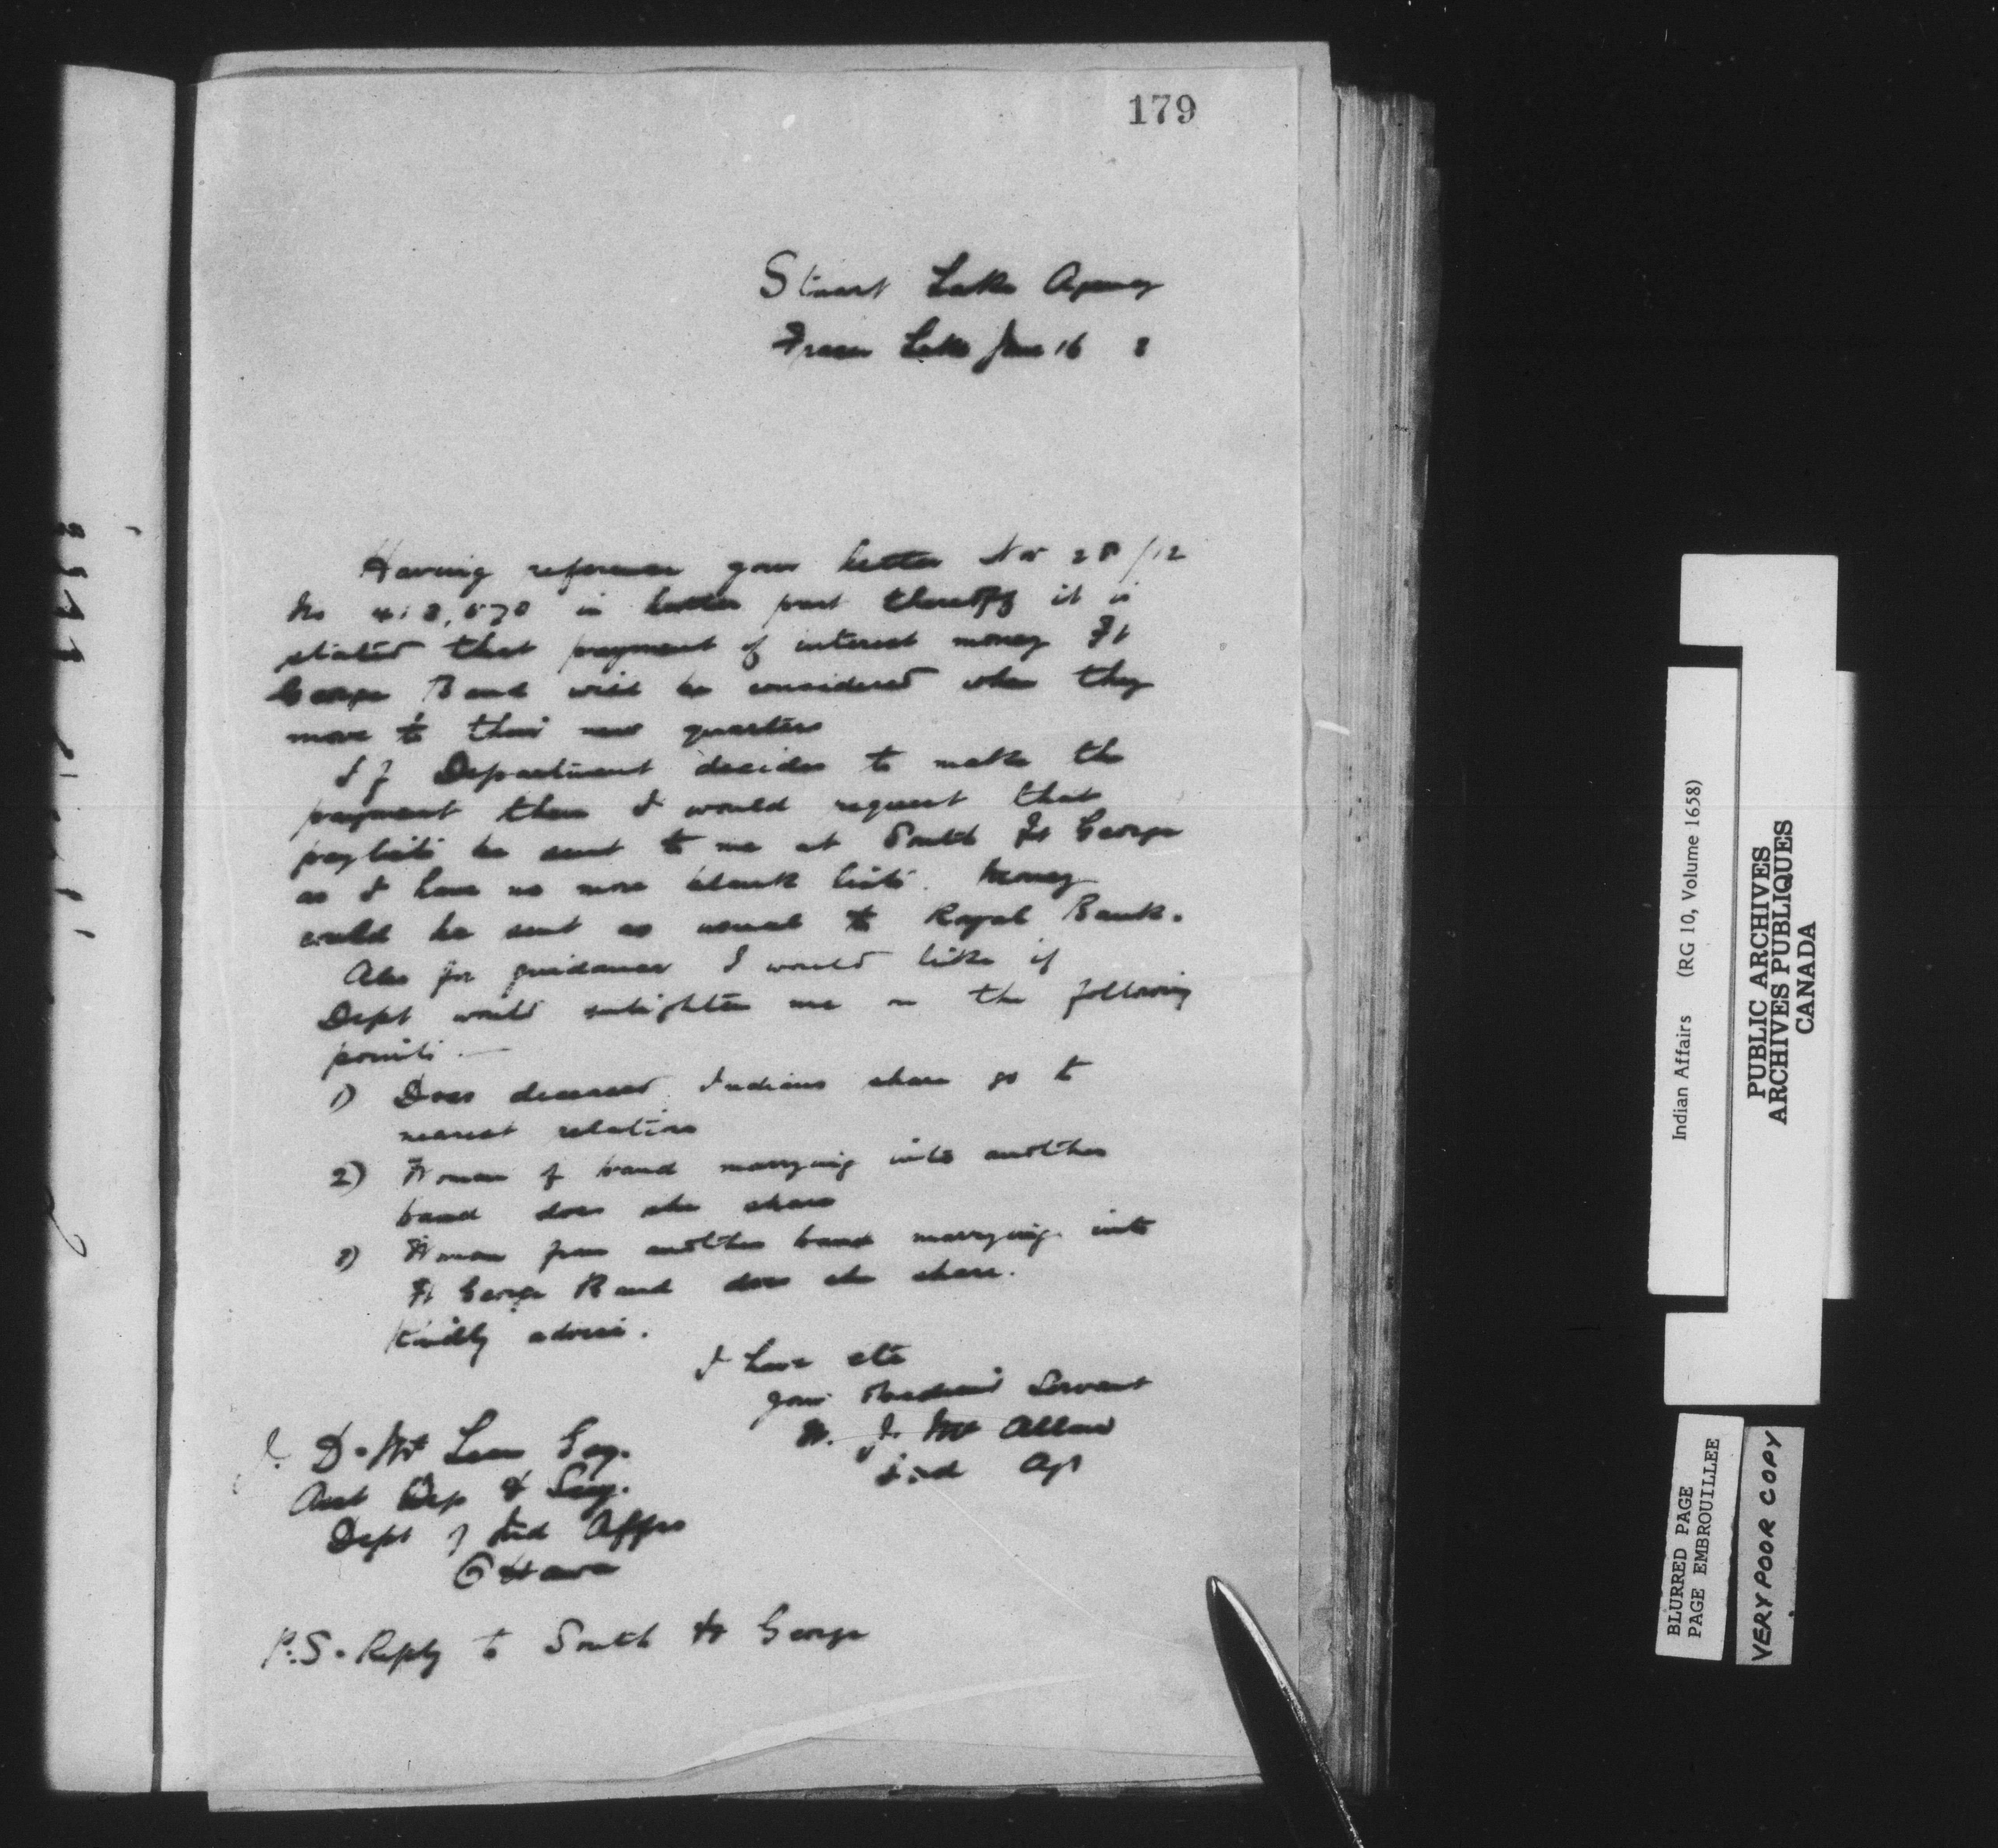 179
Stuart Lake Agency
Fraser Lake 16
Having reference your letter Nov 28/12
No in latter part thereof it is
stated that payment of interest money Ft
George Band will be considered when they
move to their new quarters
If Department decides to make the
payment then I would request that
paylists be sent to me at South Ft George
as I have no more blank lists. Money
could be sent as usual to Royal Bank.
Also for guidance I would like if
Dept would enlighten me on the following
points —
1) Does deceased Indians share go to
nearest relative
2) Woman of band marrying into another
band does she share
3) Woman from another band marrying into
Ft George Band does she share.
Kindly advise.
I have etc
your obedient Servant
W. J. Mc Allan
Ind Agt
J. D. Mc Lean Esq.
Asst Dep & Secy.
Dept of Ind Affrs
Ottawa
P.S. Reply to South Ft George
Indian Affairs (RG 10, Volume 1658)
PUBLIC ARCHIVES
ARCHIVES PUBLIQUES
CANADA
BLURRED PAGE
PAGE EMBROUILLEE
VERY POOR COPY